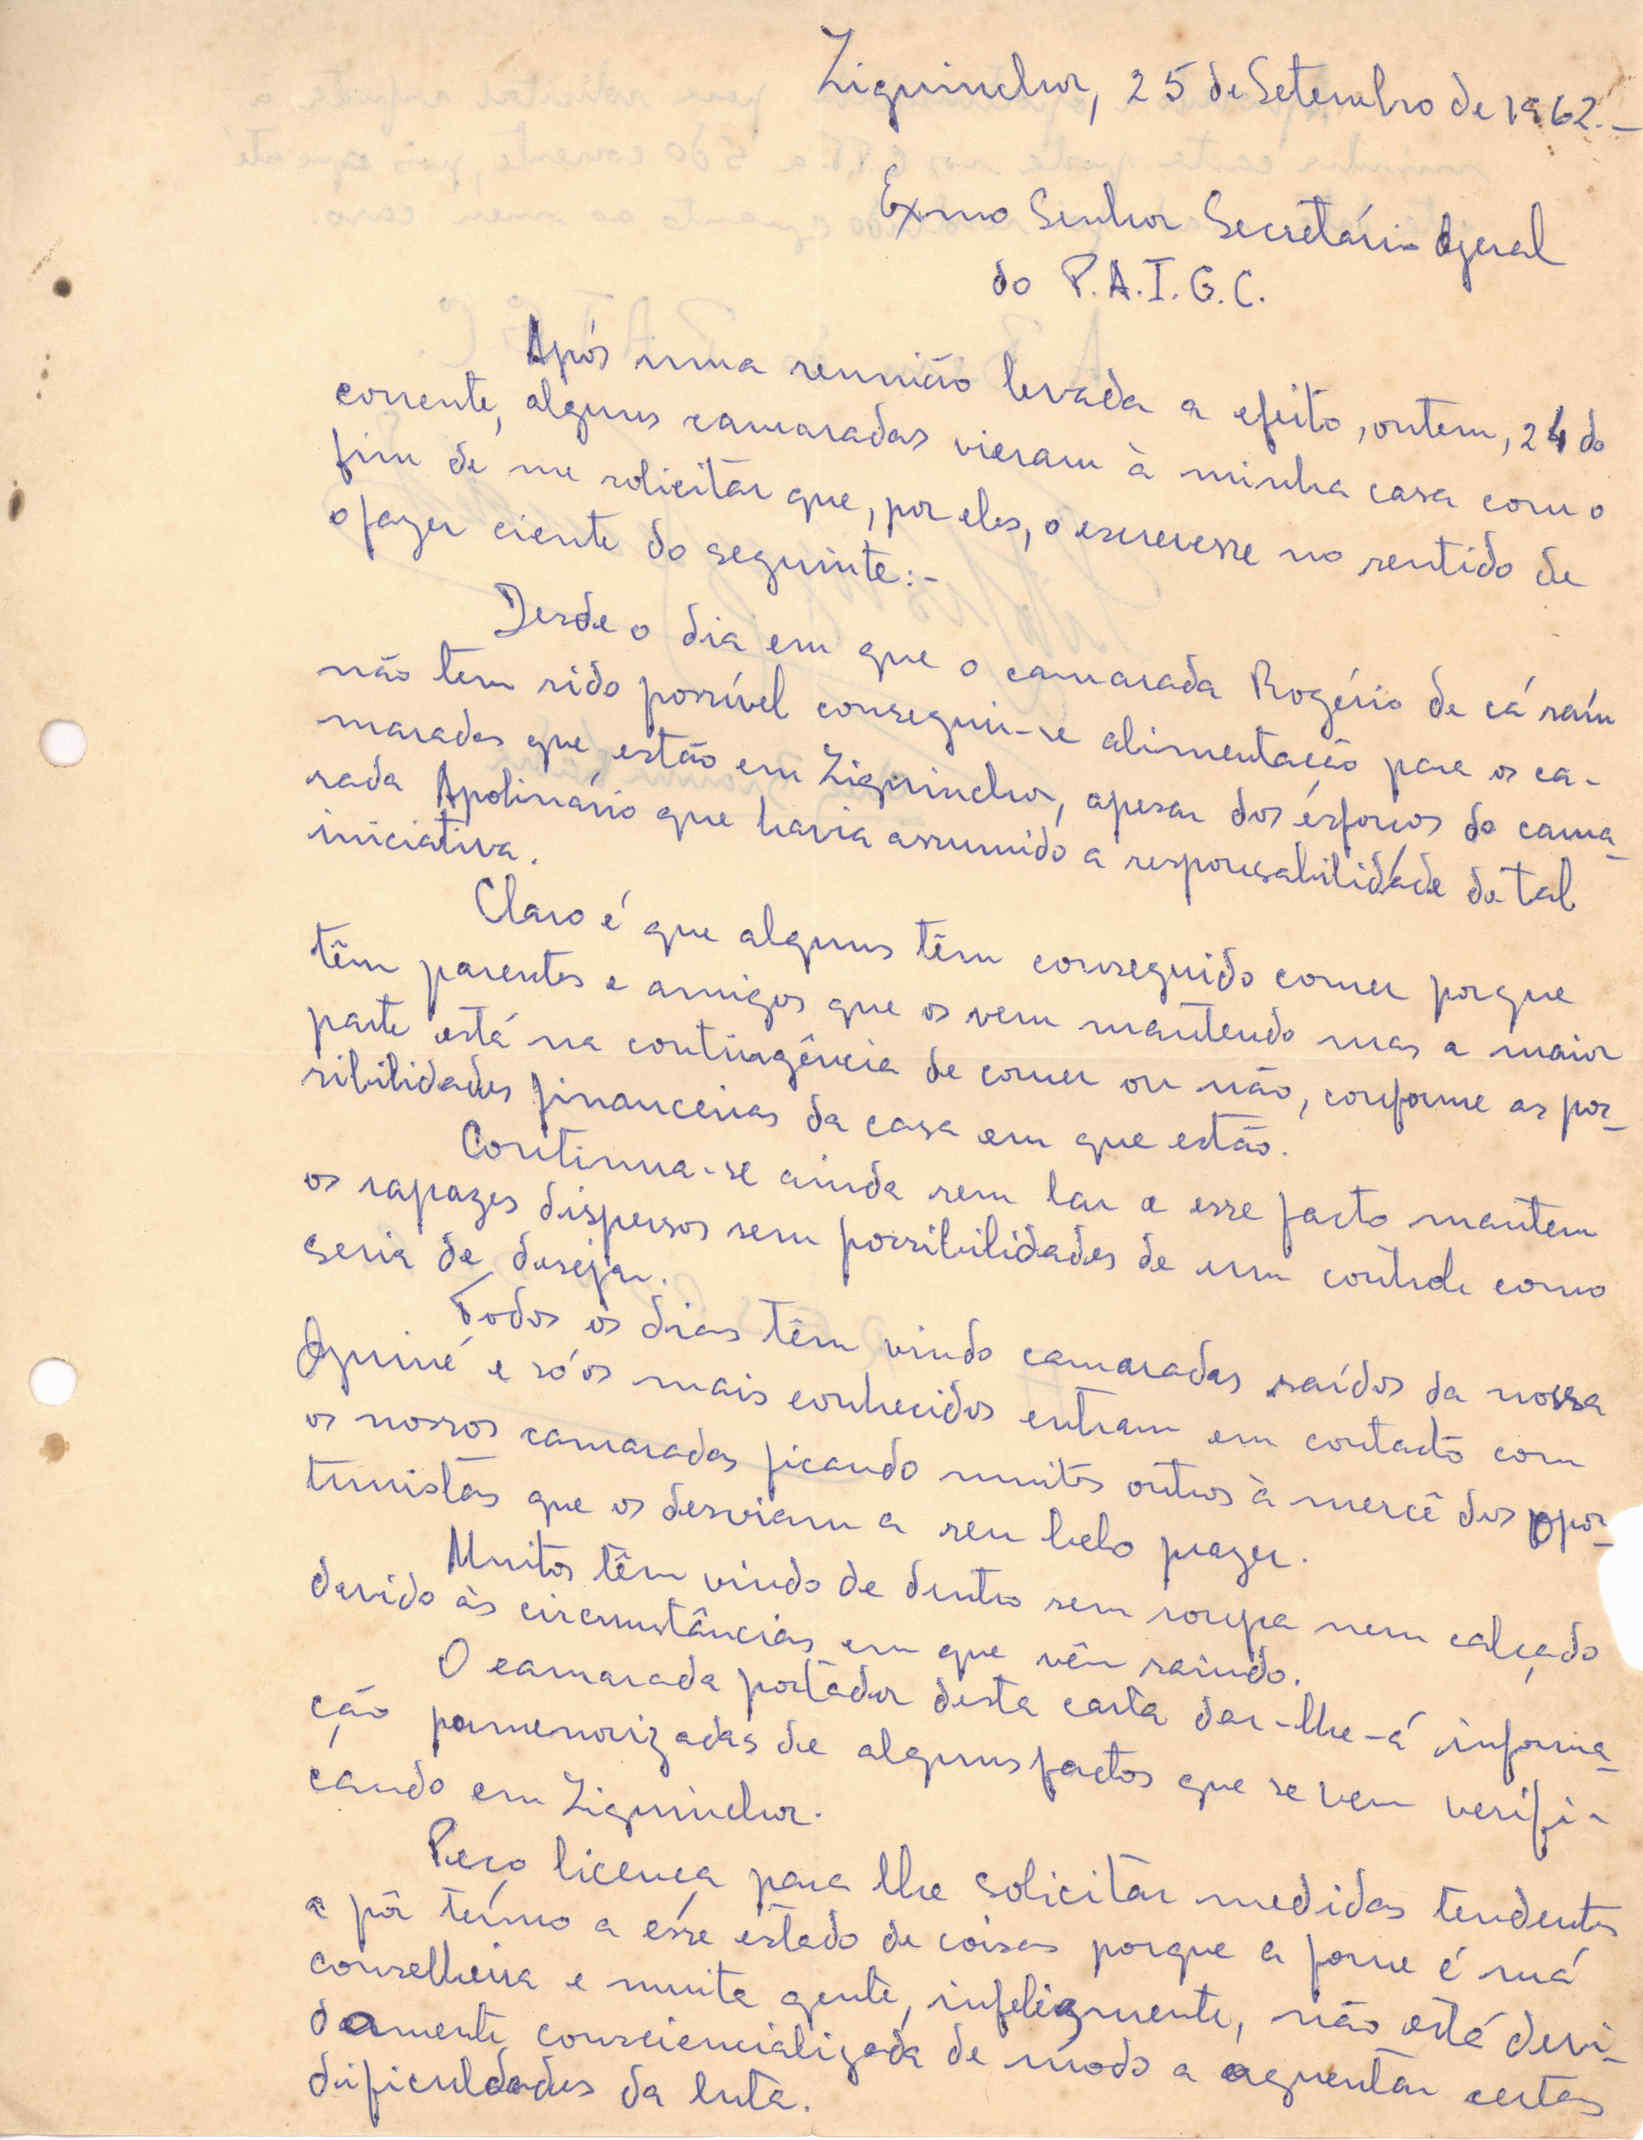 Ziguinchor, 25 de Setembro de 1962.-
Exmo Senhor Secretário Geral
do P.A.I.G.C.
Após uma reunião levada a efeito, ontem, 24 do
corrente, alguns camaradas vieram à minha casa com o
fim de me solicitar que, por eles, o escrevesse no sentido de
o fazer ciente do seguinte:-
Desde o dia em que o camarada Rogério de cá saíu
não tem sido possível conseguir-se alimentação para os ca-
maradas que estão em Ziguinchor, apesar dos esforços do cama-
rada Apolinário que havia assumido a responsabilidade de tal
iniciativa.
Claro é que alguns têm conseguido comer porque
têm parentes e amigos que os vem mantendo mas a maior
parte está na contingência de comer ou não, conforme as pos-
sibilidades financeiras da casa em que estão.
Continua-se ainda sem lar e esse facto mantem
os rapazes dispersos sem possibilidades de um controle como
seria de desejar.
Todos os dias têm vindo camaradas saídos da nossa
Guiné e só os mais conhecidos entram em contacto com
os nossos camaradas ficando muitos outros à mercê dos opor-
tunistas que os desviam a seu belo prazer.
Muitos têm vindo de dentro sem roupa nem calçado
devido às circunstâncias em que vêm saindo.
O camarada portador desta carta dar-lhe-á informa-
ção pormenorizadas de alguns factos que se vem verifi-
cando em Ziguinchor.
Peço licença para lhe solicitar medidas tendentes
a pôr termo a esse estado de coisas porque a fome é má
conselheira e muita gente, infelizmente, não está devi-
damente consciencializada de modo a aguentar certas
dificuldades da luta.